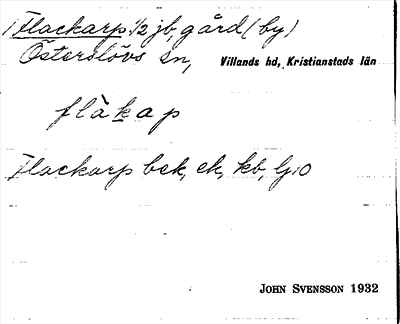 Flackarp ½ jb, gård (by)
Österslövs sn, Villands hd, Kristianstads län
flàkap
Flackarp bek, ek, kb, Gj10
JOHN SVENSSON 1932